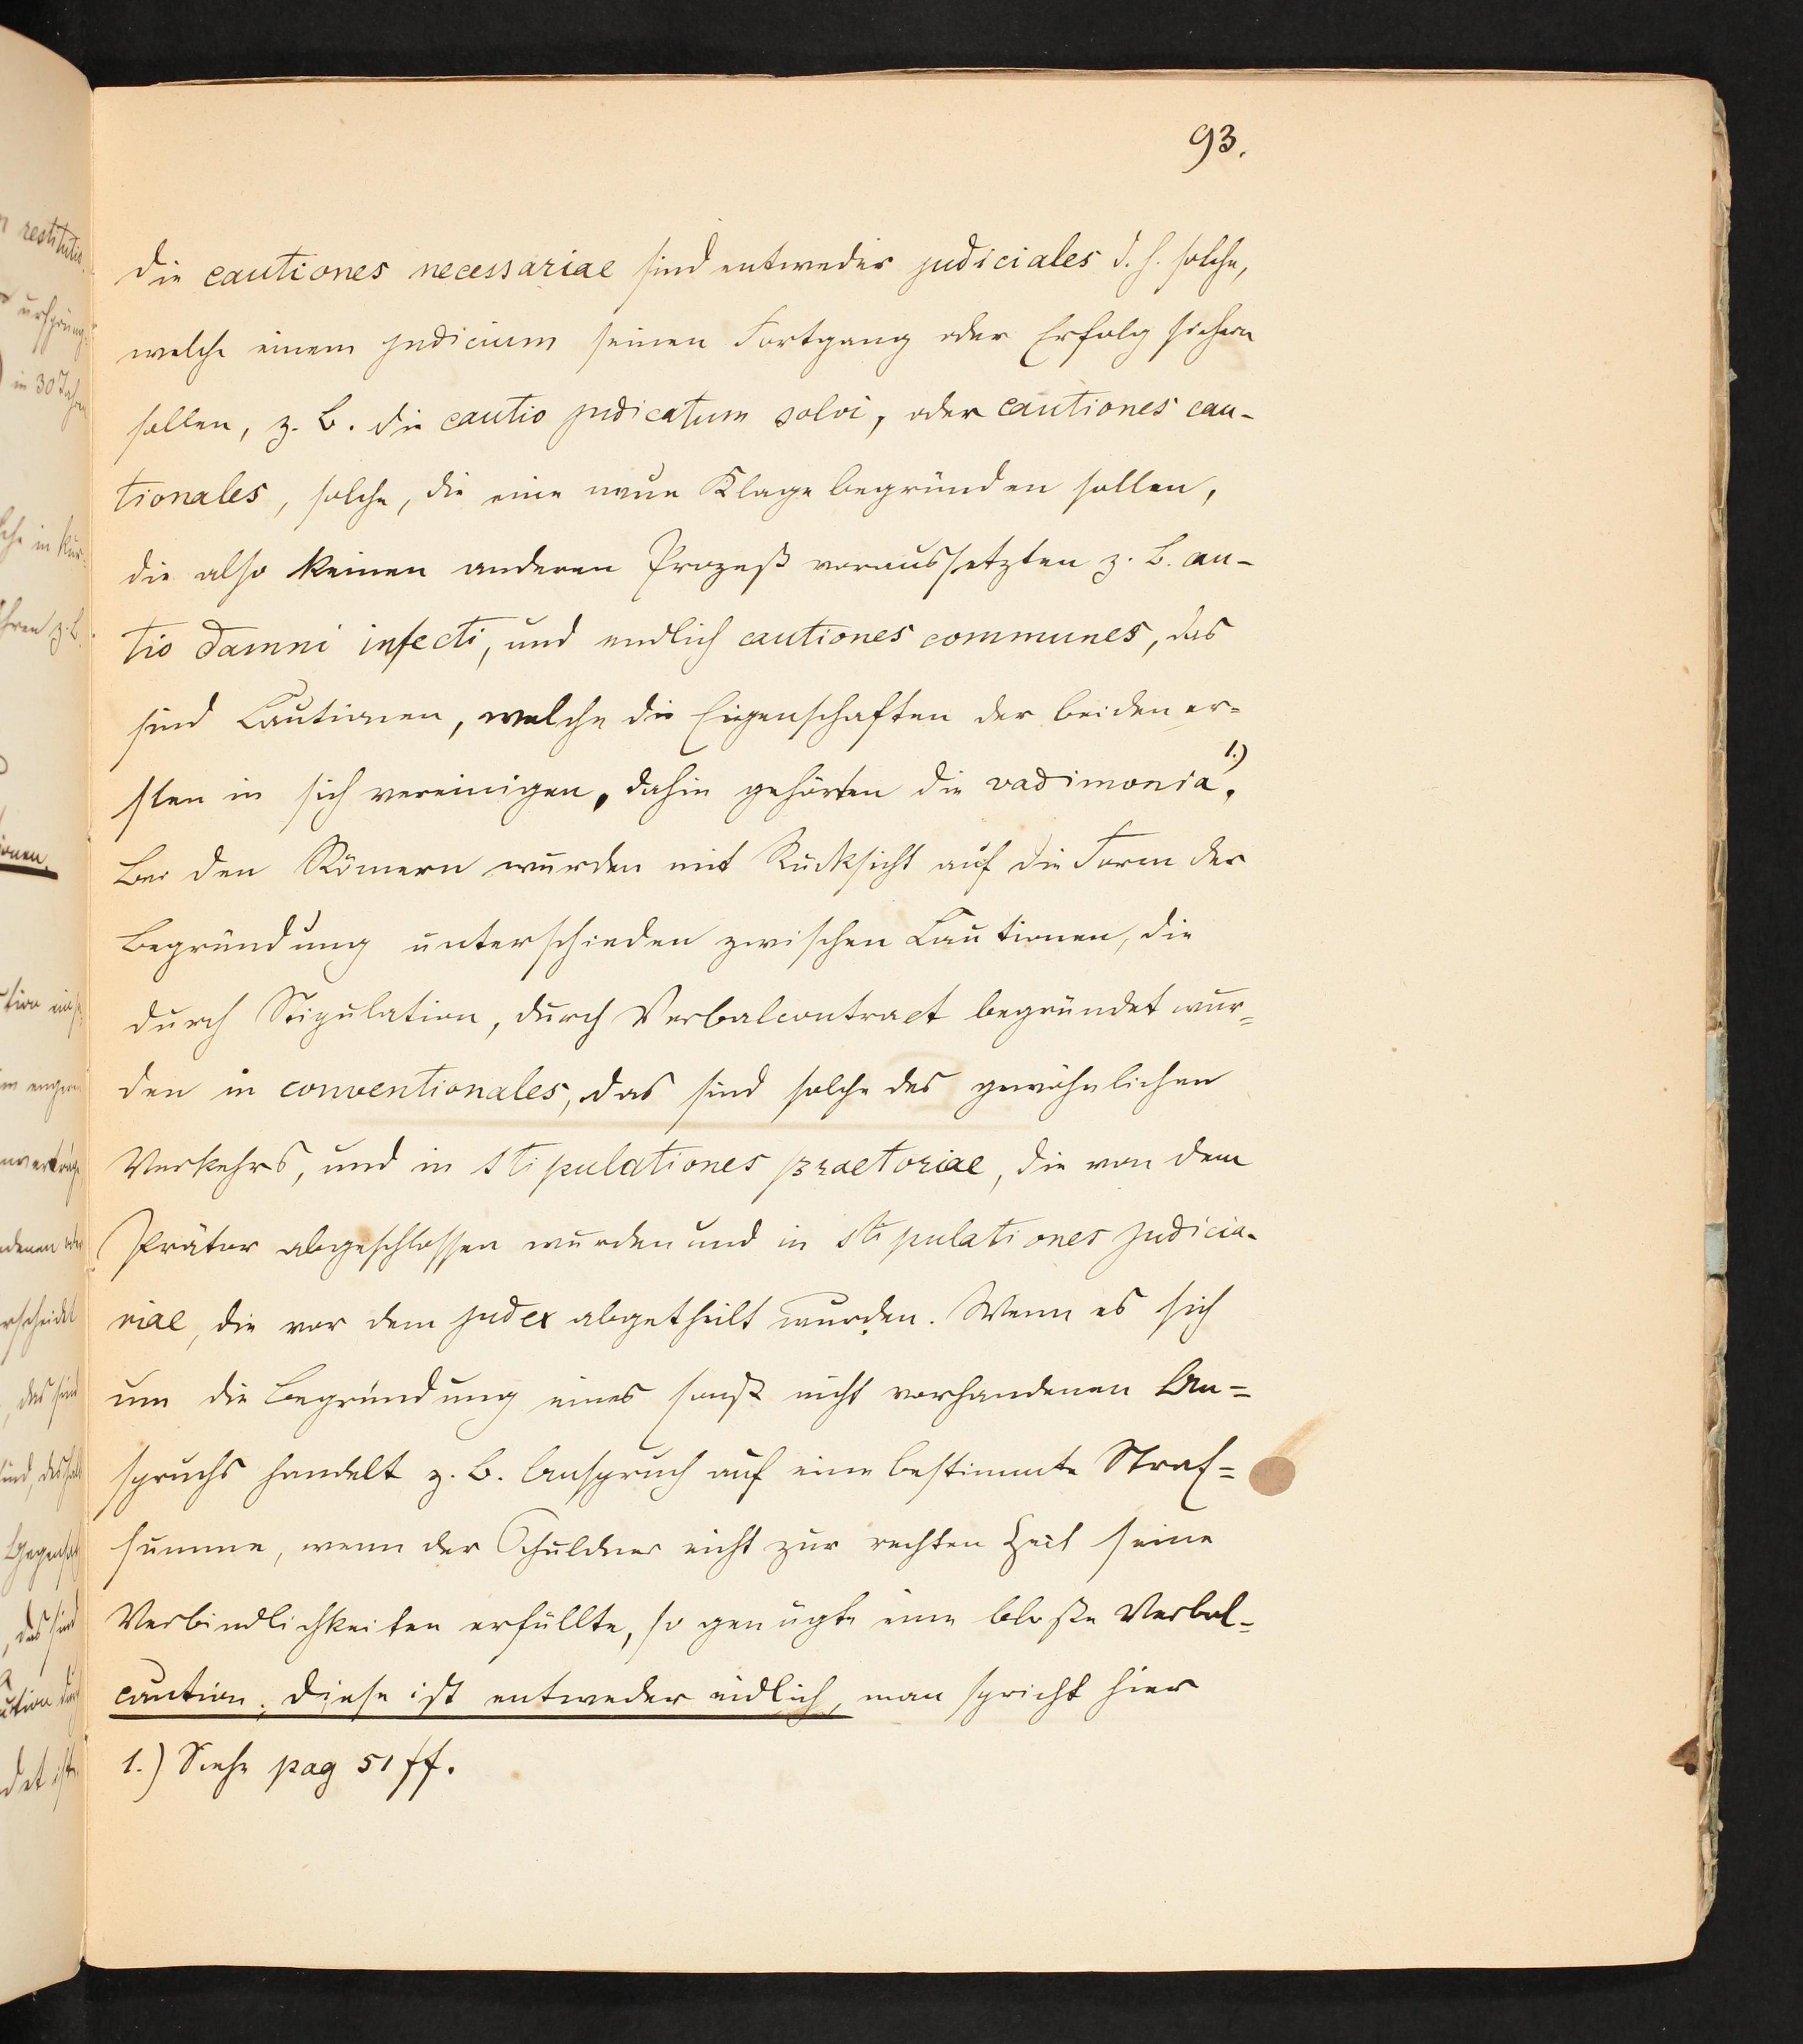 93.
die cautiones necessariae sind entweder judiciales d. h. solche,
welche einem judicium seinen Fortgang oder Erfolg sichern
sollen, z. B. die cautio judicatum solvi, oder cautiones cau-
tionales, solche, die eine neue Klage begründen sollen,
die also keinen anderen Prozeß voraussetzten z. B. cau-
tio damni infecti, und endlich cautiones communes, das
sind Cautionen, welche die Eigenschaften der beiden er=
sten in sich vereinigen, dahin gehörten die vadimonia 1.).
Bei den Römern wurden mit Rücksicht auf die Form der
Begründung unterschieden zwischen Cautionen, die
durch Stipulation, durch Verbalcontract begründet wur=
den in conventionales, das sind solche des gewöhnlichen
Verkehrs, und in stipulationes praetoriae, die von dem
Prätor abgeschlossen wurden und in stipulationes judicia-
riae, die vor dem judex abgetheilt wurden. Wenn es sich
um die Begründung eines sonst nicht vorhandenen An=
spruchs handelt z. B. Anspruch auf eine bestimmte Straf=
summe, wenn der Schuldner nicht zur rechten Zeit seine
Verbindlichkeiten erfüllte, so genügte eine bloße Verbal=
caution. Diese ist entweder eidlich, man spricht hier
1.) Siehe pag 51 ff.